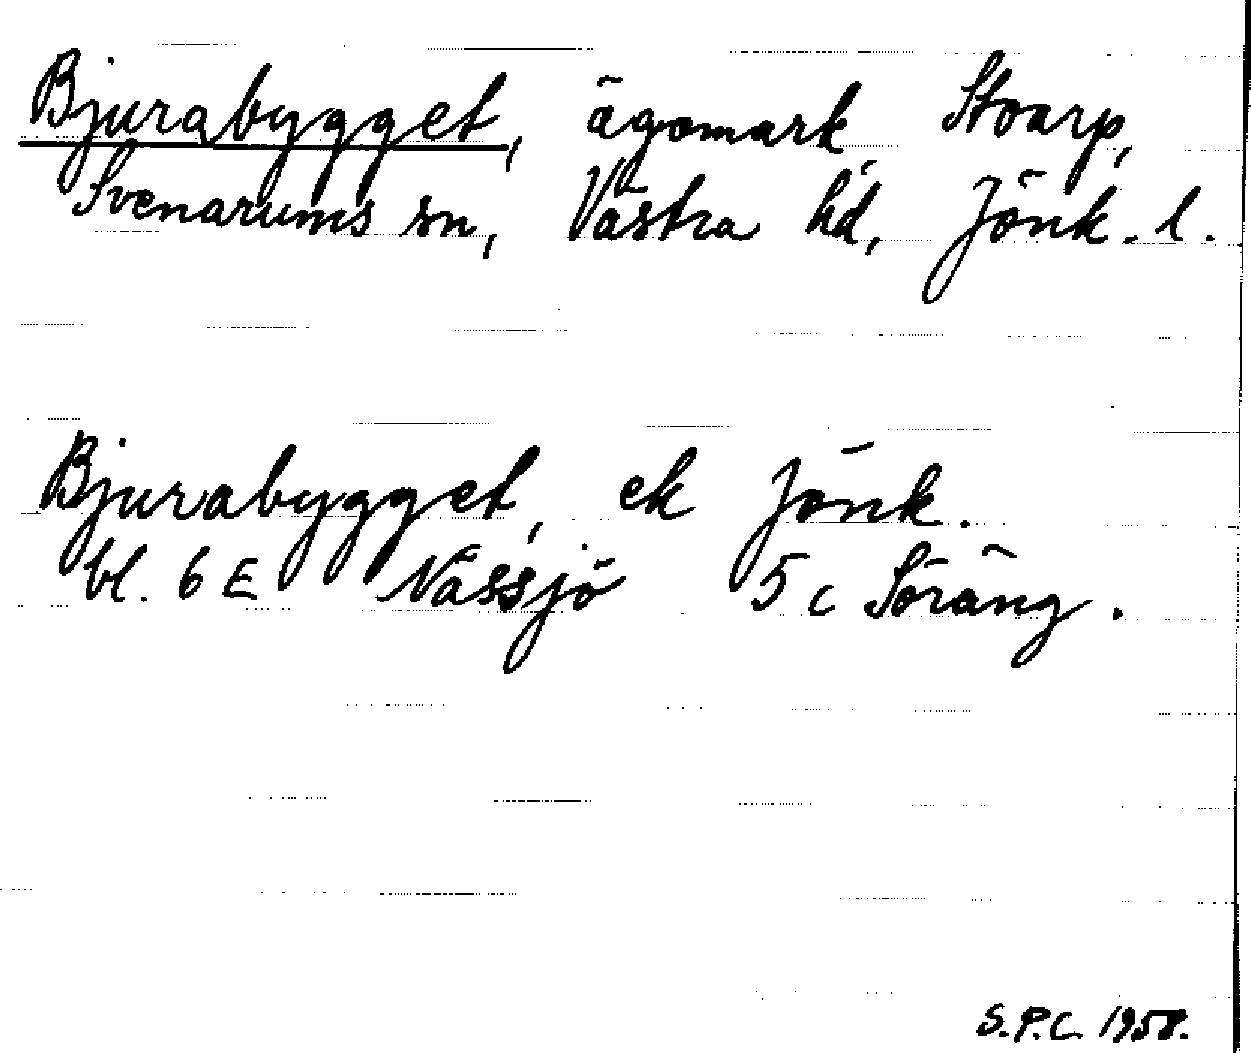 Bjurabygget, ägomark, Stoarp,
Svenarums sn, Västra hd, Jönk. l.
Bjurabygget, ek Jönk.
bl. 6 E Nässjö 5 c Söräng.
S.P.C. 1958.